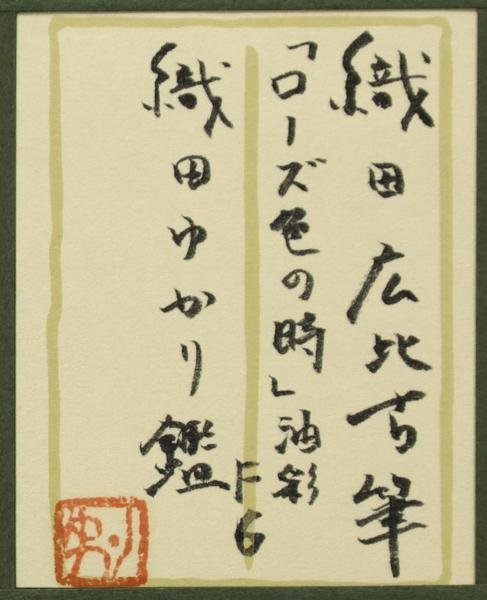 織田広比古筆
「ローズ色の時」油彩
F6
織田ゆかり鑑